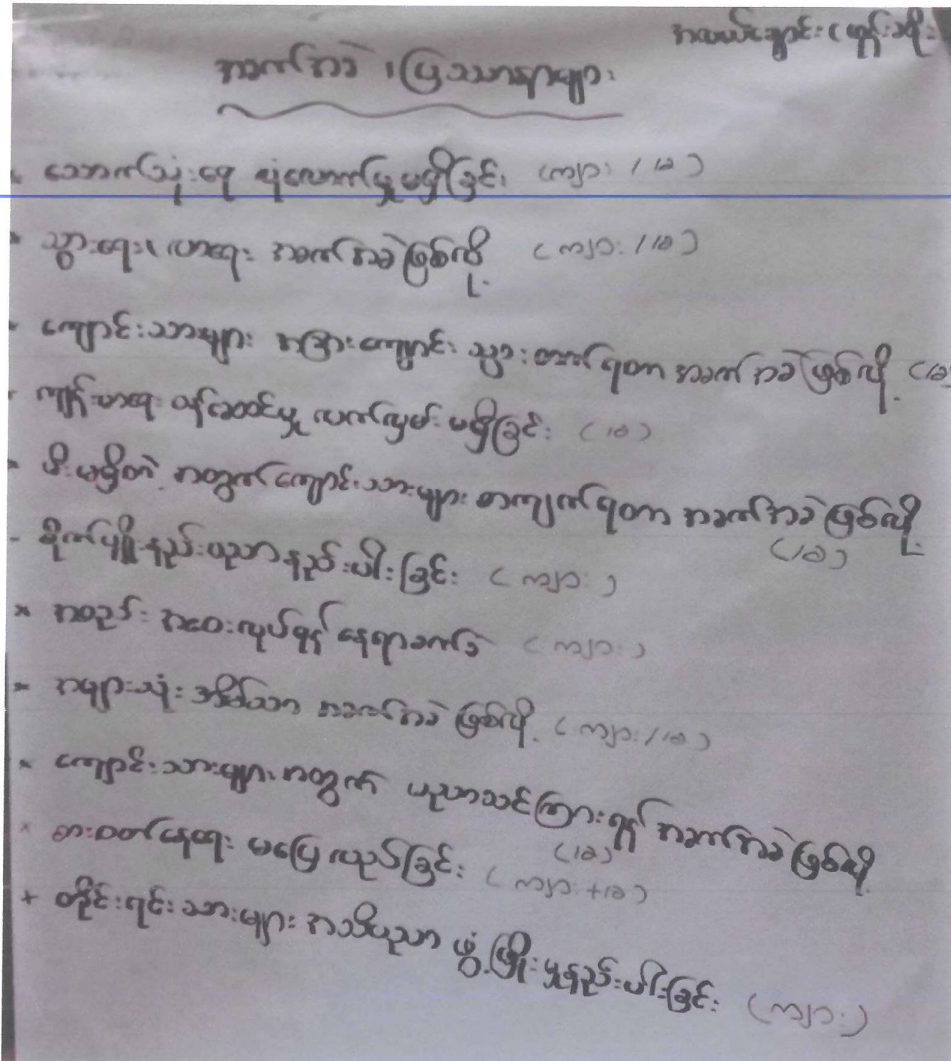 အလယ်ချောင်း (ကုန်းခိုး
အခက်အခဲ ၊ ပြဿနာများ
သောက်သုံးရေ လုံလောက်မှု မရှိခြင်း (ကျား / ခ)
* သွားရေး၊ လာရေး အခက်အခဲဖြစ်လို့ (ကျား / ခ)
* ကျောင်းသားများ အခြားကျောင်း သွားတက်ရတာ အခက်အခဲဖြစ်လို့ (ခ
ကျန်းမာရေး ဝန်ဆောင်မှု လက်လှမ်း မရှိခြင်း (ခ)
* မီးမရှိတဲ့ အတွက်ကျောင်းသားများ စာကျက်ရတာ အခက်အခဲဖြစ်လို့
(ခ)
- စိုက်ပျိုးနည်းပညာနည်းပါးခြင်း (ကျား)
* အစည်းအဝေးလုပ်ရန် နေရာခက်ခဲ (ကျား)
* အများသုံး အိမ်သာ အခက်အခဲ ဖြစ်လို့ (ကျား / ခ)
* ကျောင်းသားများအတွက် ပညာသင်ကြားရန် အခက်အခဲဖြစ်လို့
(ခ)
* စားဝတ်နေရေး မပြေလည်ခြင်း (ကျား + ခ)
+ တိုင်းရင်းသားများ အသိပညာ ဖွံ့ဖြိုးမှုနည်းပါးခြင်း (ကျား)